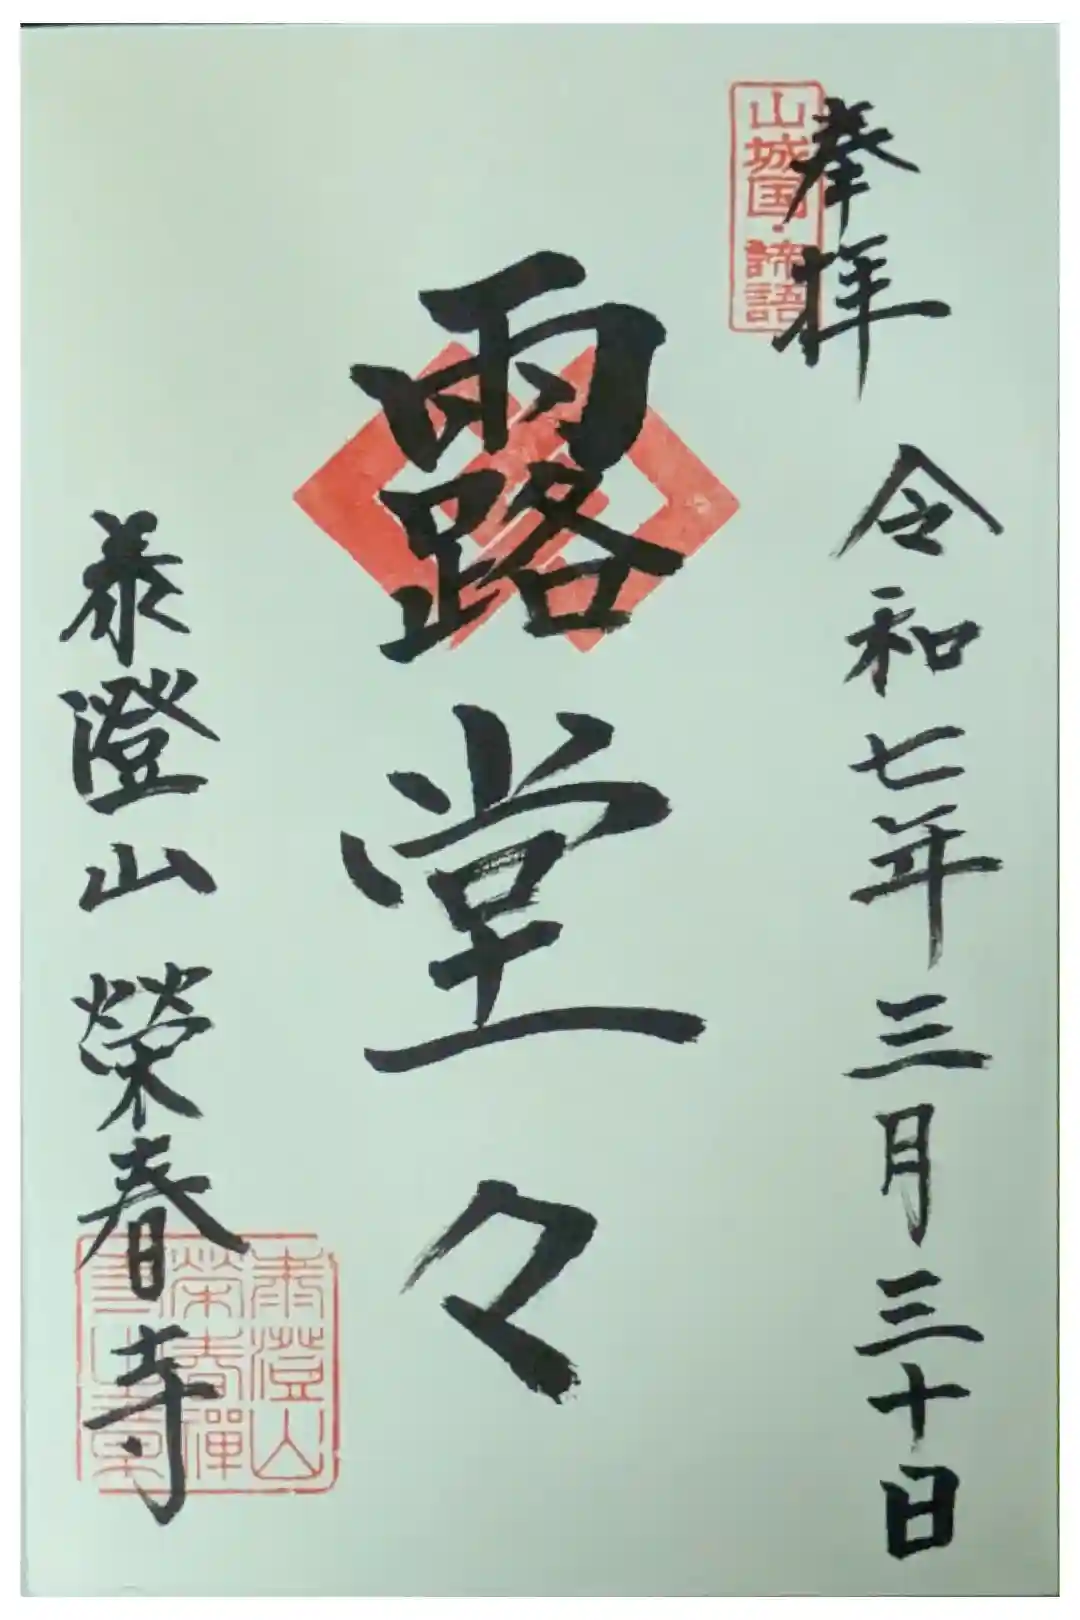 奉拝
山城国・諦語
令和七年三月三十日
露堂々
泰澄山 榮春寺
泰澄山
榮春禅
寺之章